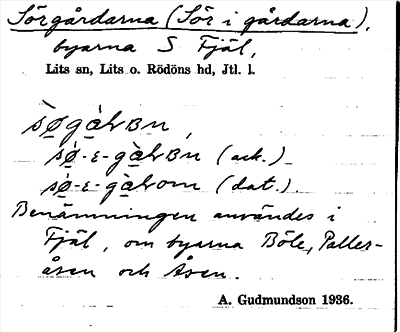 Sörgårdarna (Sör i gårdarna),
byarna S Fjäl,
Lits sn, Lits o. Rödöns hd, Jtl. l.
sø̀gàɫʀBn,
sø̀-ε-gàɫʀBn (ack.)
sø̀-ε-gàɫʀom (dat.).
Benämningen användes i
Fjäl, om byarna Böle, Paller-
åsen och Åsen.
A. Gudmundson 1936.